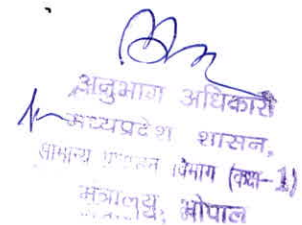 अनुभाग अधिकारी
मध्यप्रदेश शासन,
सामान्य प्रशासन विभाग (कक्ष-1)
मंत्रालय, भोपाल